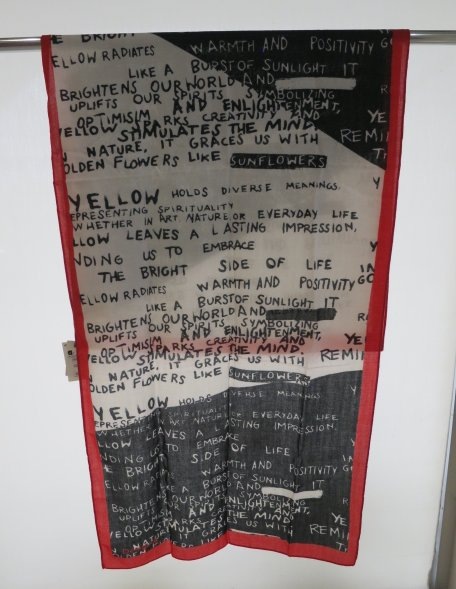 BRIGHT
ELLOW RADIATES WARMTH AND POSITIVITY
LIKE A BURST OF SUNLIGHT IT
BRIGHTENS OUR WORLD AND
UPLIFTS OUR SPIRITS SYMBOLIZING
OPTIMISIM AND ENLIGHTENMENT,
YELLOW SPARKS CREATIVITY AND
STIMULATES THE MIND. REMI
NATURE, IT GRACES US WITH
OLDEN FLOWERS LIKE SUNFLOWERS
YELLOW HOLDS DIVERSE MEANINGS.
EPRESENTING SPIRITUALITY
WHETHER IN ART, NATURE OR EVERYDAY LIFE
LLOW LEAVES A LASTING IMPRESSION,
NDING US TO EMBRACE
THE BRIGHT SIDE OF LIFE
ELLOW RADIATES WARMTH AND POSITIVITY GO
LIKE A BURST OF SUNLIGHT IT
BRIGHTENS OUR WORLD AND
UPLIFTS OUR SPIRITS SYMBOLIZING
OPTIMISIM AND ENLIGHTENMENT, YE
YELLOW SPARKS CREATIVITY AND
STIMULATES THE MIND. REMI
NATURE, IT GRACES US WITH
OLDEN FLOWERS LIKE SUNFLOWERS
YELLOW HOLDS DIVERSE MEANINGS.
EPRESENTING SPIRITUALITY
WHETHER IN ART NATURE OR EVERYDAY LIFE
LLOW LEAVES A LASTING IMPRESSION,
NDING US TO EMBRACE
BRIGHT SIDE OF LIFE
WARMTH AND POSITIVITY
LIKE A BURST OF SUNLIGHT IT
BRIGHTENS OUR WORLD AND
UPLIFTS OUR SPIRITS SYMBOLIZING
OPTIMISIM AND ENLIGHTENMENT, YE
YELLOW SPARKS CREATIVITY AND
STIMULATES THE MIND. REMI
NATURE, IT GRACES US WITH